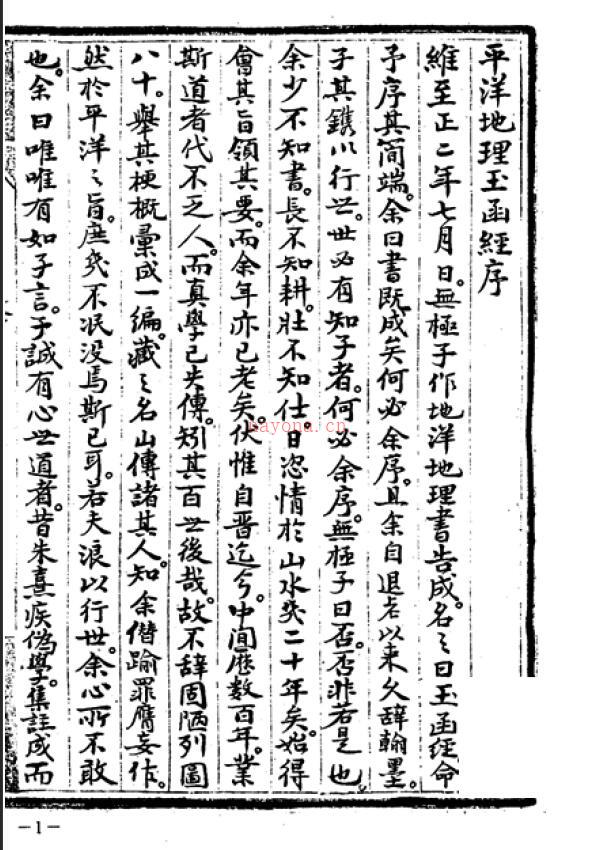 平洋地理玉函經序
維至正二年七月日。無極子作地洋地理書告成。名之曰玉函經命
予序其簡端。余曰書既成矣何必余序。且余自退老以來久辭翰墨。
子其鐫以行世。世必有知子者。何必余序。無極子曰否。否非若是也
余少不知書。長不知耕。壯不知仕。日恣情於山水矣二十年矣。始得
會其旨領其要。而余年亦已老矣。伏惟自晋迄今。中间歷數百年。業
斯道者代不乏人。而真學已失傳。矧其百世後哉。故不辭固陋列圖
八十。舉其梗概彙成一編。藏之名山傳諸其人。知余僭踰罪膺妄作。
然於平洋之旨。庶幾不泯没焉斯已耳。若夫浪以行世。余心所不敢
也。余曰唯唯有如子言。予誠有心世道者。昔朱熹疾偽學。集註成而
hayona.cn
—1—